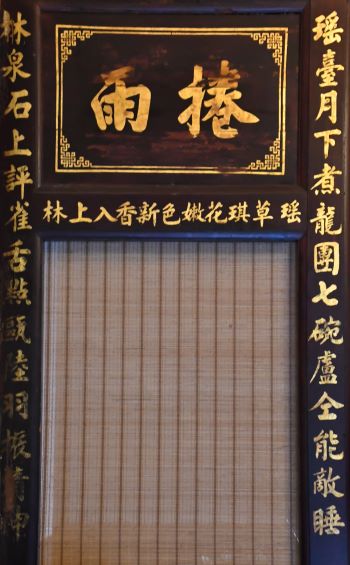 捲雨
瑤草琪花嫩色新香入上林
瑶臺月下煮龍團七碗盧仝能敵睡
林泉石上評雀舌點甌陸羽振精神